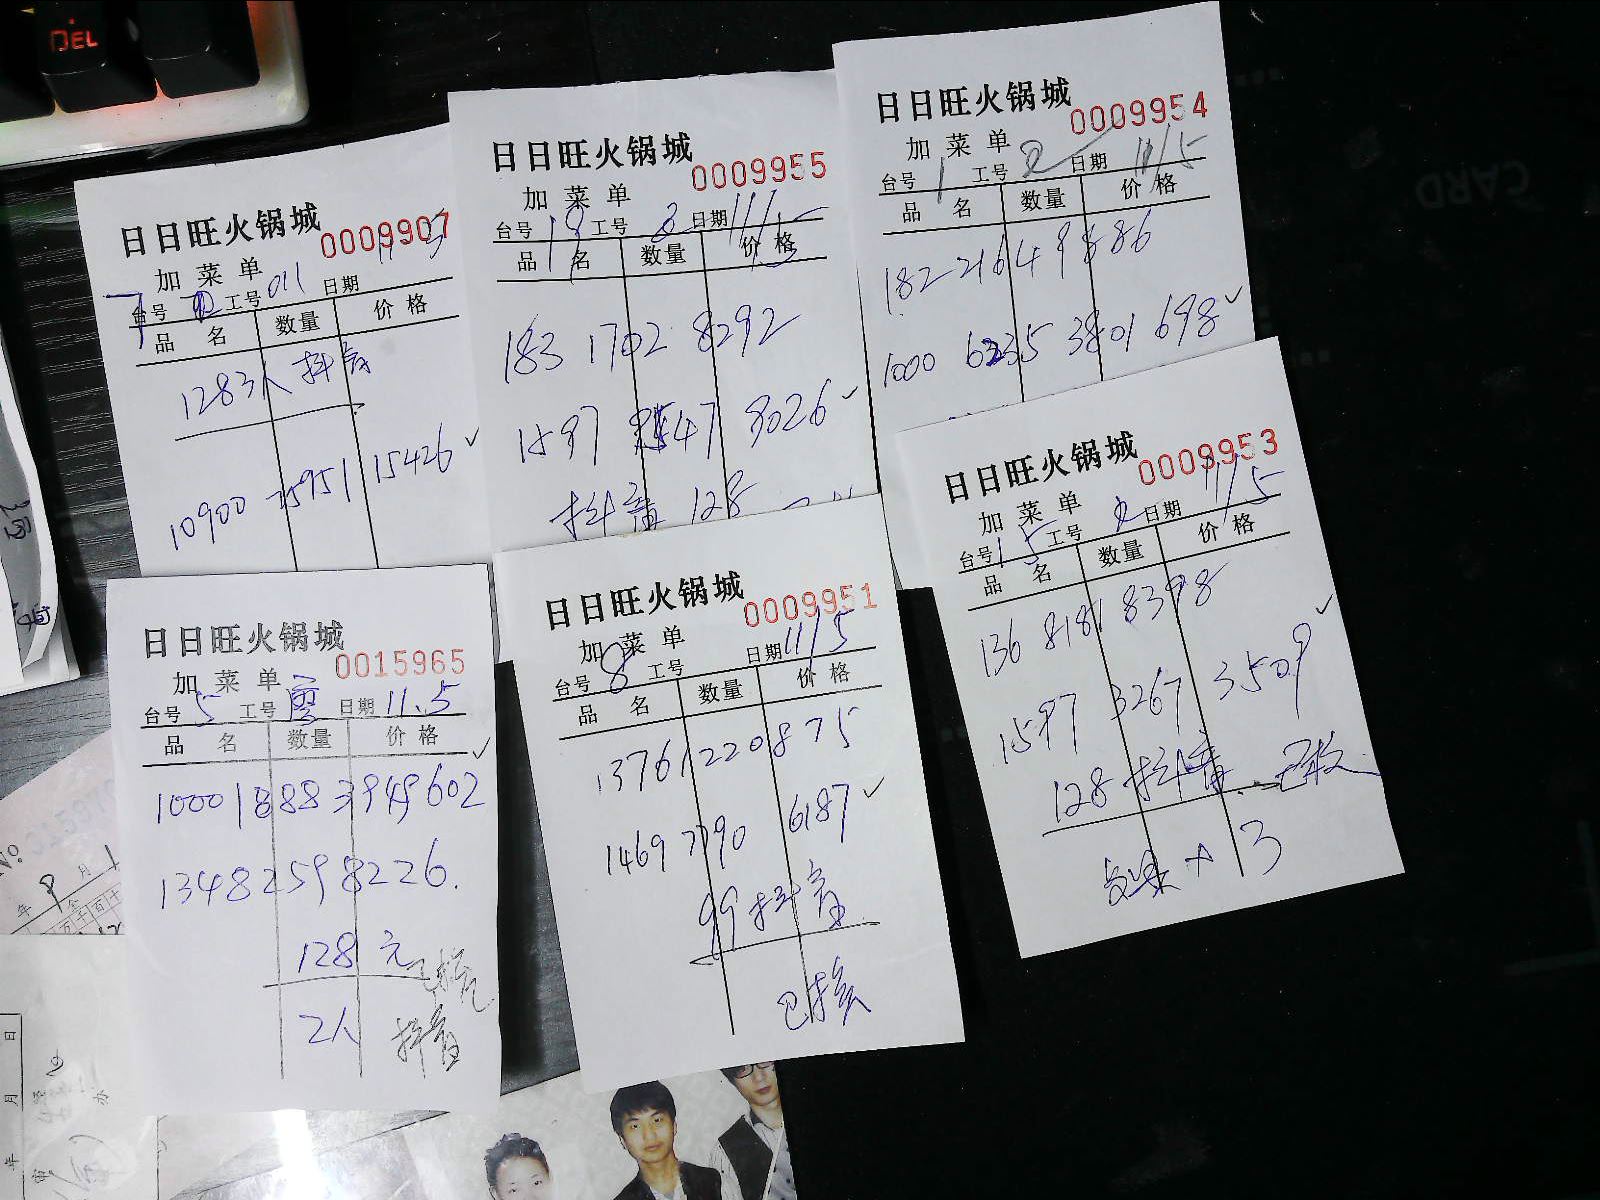 DEL
日日旺火锅城
0009907
加菜单
台号 工号 011 日期 11.5
品 名 数量 价 格
128 3人 抖音
10900 25951 15426 ✓
日日旺火锅城
0009955
加菜单
台号 19 工号 2 日期 11/5
品 名 数量 价 格
183 1702 8292
1597 47 8026 ✓
抖音 128
日日旺火锅城
0009954
加菜单
台号 1 工号 2 日期 11/5
品 名 数量 价 格
182 2164 9886
1000 6235 3801 698 ✓
日日旺火锅城
0015965
加菜单
台号 5 工号 廖 日期 11.5
品 名 数量 价 格
1000 1888 3949 602 ✓
1348 2598 226.
128 元
2人 抖音
日日旺火锅城
0009951
加菜单
台号 8 工号 日期 11/5
品 名 数量 价 格
1376 1220 875
1469 7790 6187 ✓
99 抖音
已核
日日旺火锅城
0009953
加菜单
台号 15 工号 2 日期 11/5
品 名 数量 价 格
136 8181 8398
1597 3267 3509 ✓
128 抖音 已核
+ 3
CARD